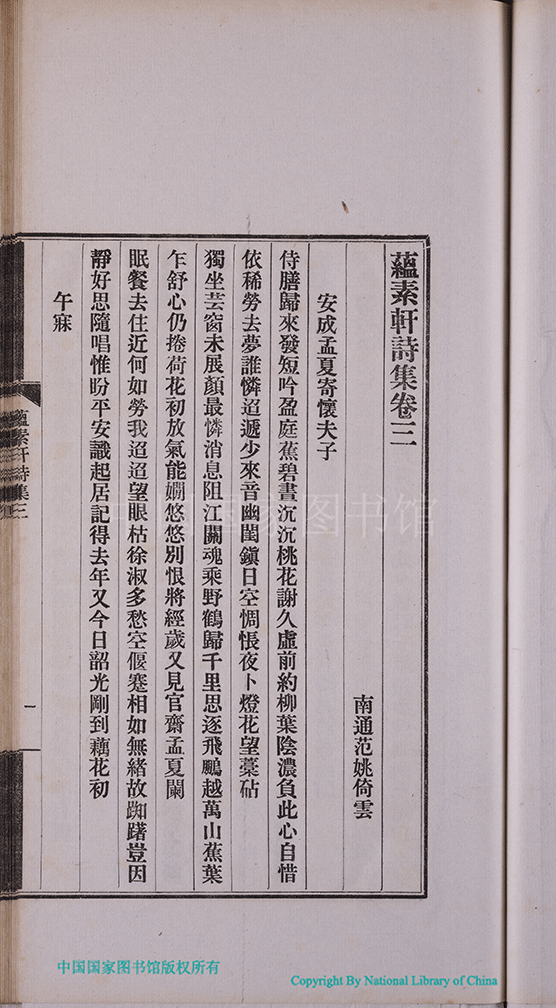 蘊素軒詩集卷三
南通范姚倚雲
安成孟夏寄懷夫子
侍膳歸來發短吟盈庭蕉碧晝沉沉桃花謝久虛前約柳葉陰濃負此心自惜
依稀勞去夢誰憐迢遞少來音幽閨鎭日空惆悵夜卜燈花望藁砧
獨坐芸窗未展顏最憐消息阻江關魂乘野鶴歸千里思逐飛鵬越萬山蕉葉
乍舒心仍捲荷花初放氣能嫻悠悠別恨將經歲又見官齋孟夏闌
眠餐去住近何如勞我迢迢望眼枯徐淑多愁空偃蹇相如無緒故踟躇豈因
靜好思隨唱惟盼平安識起居記得去年又今日韶光剛到藕花初
午寐
蘊素軒詩集三
一
中国国家图书馆
中国国家图书馆版权所有
Copyright By National Library of China